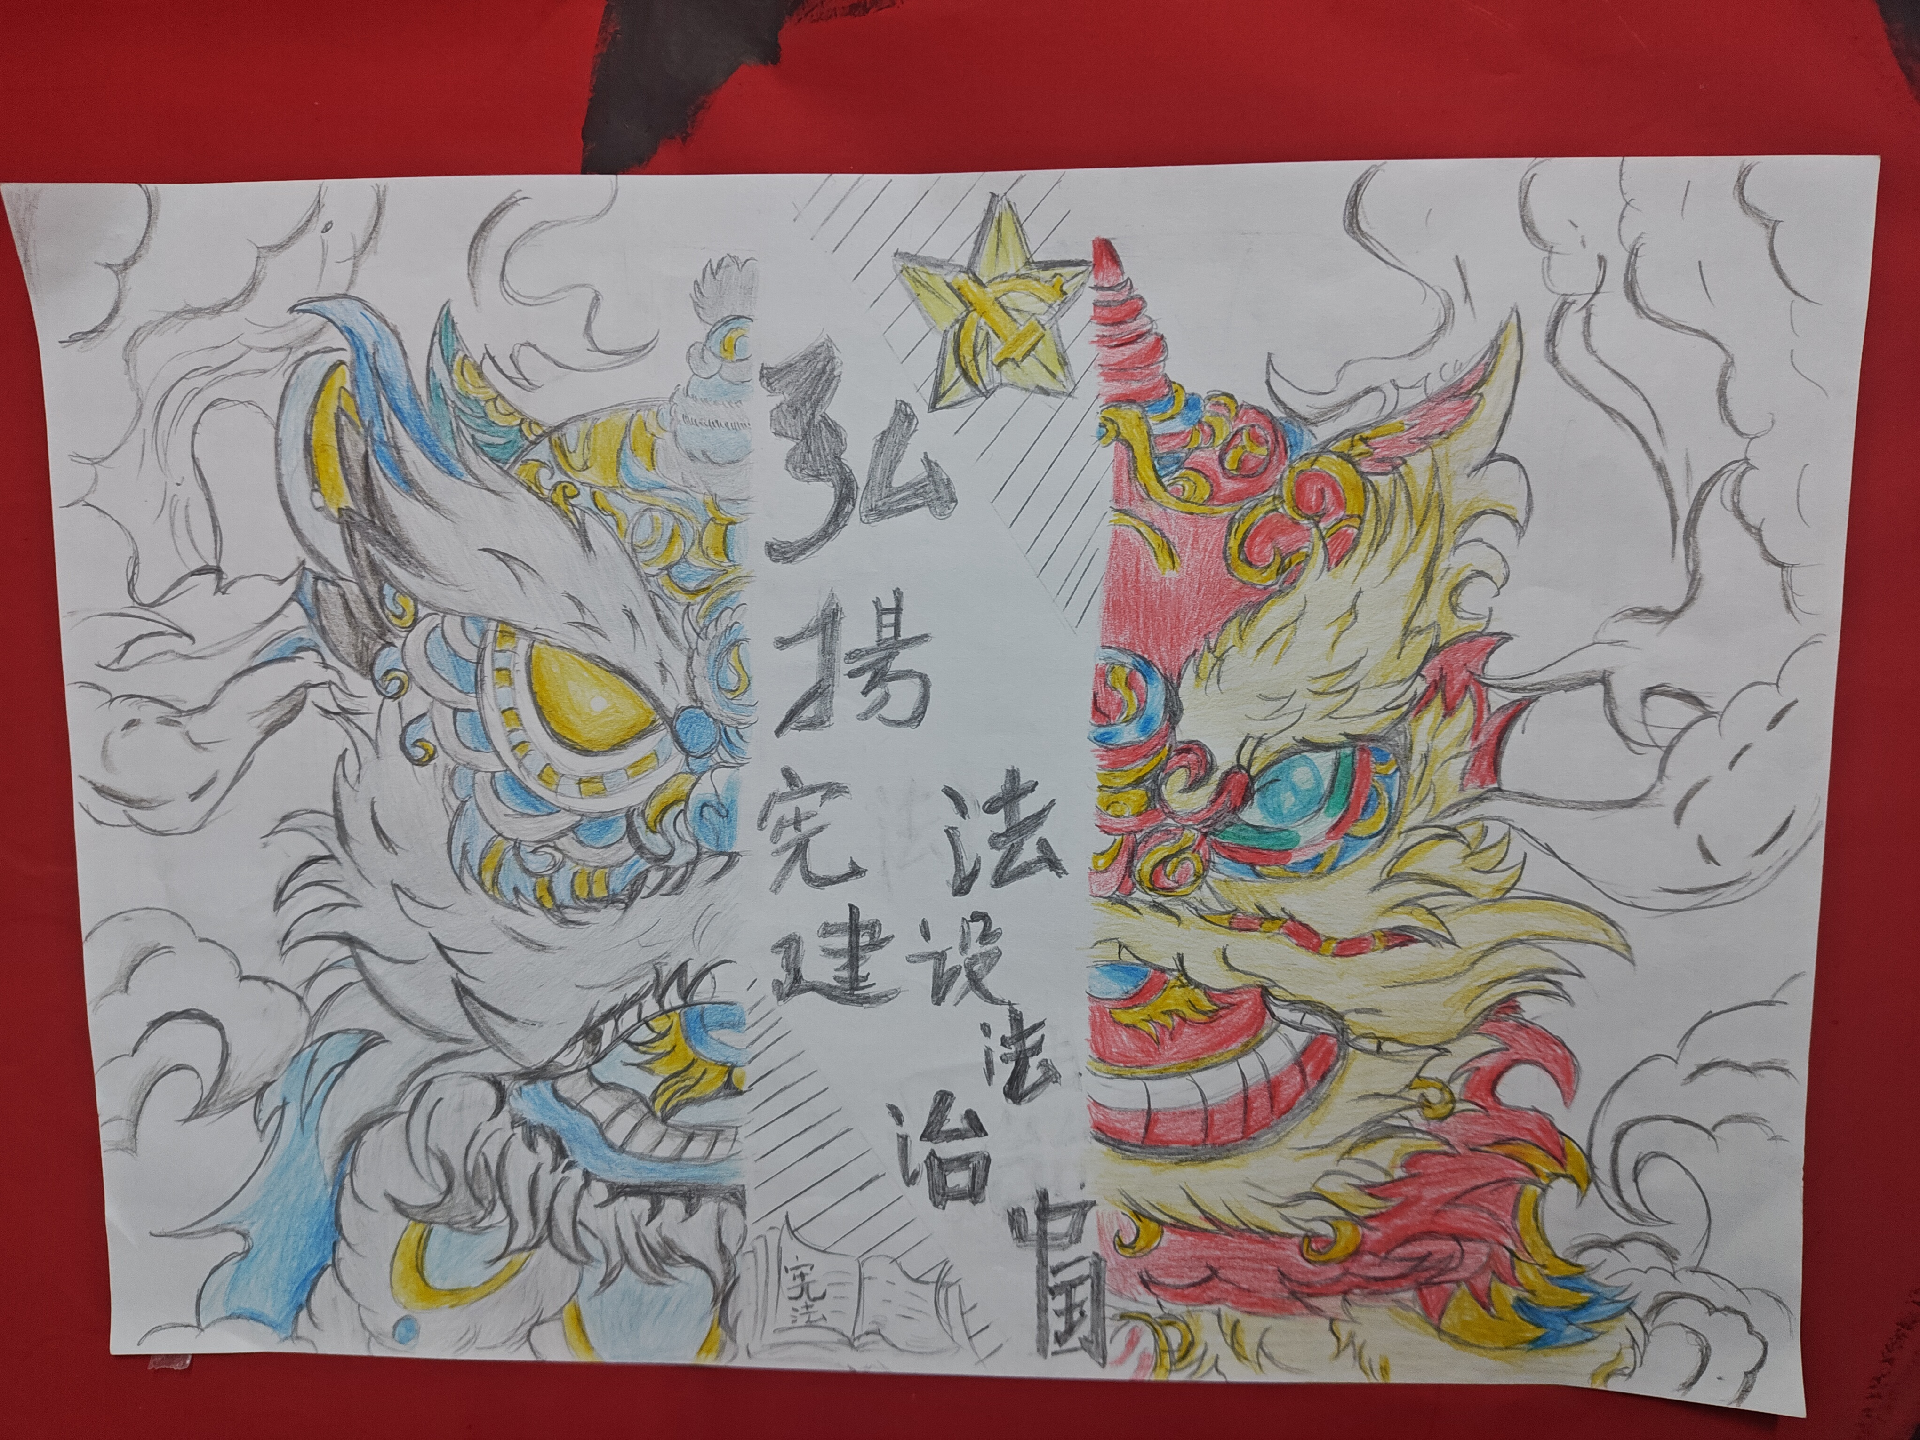 弘
揚
宪法
建设
法
治
中
国
宪
法